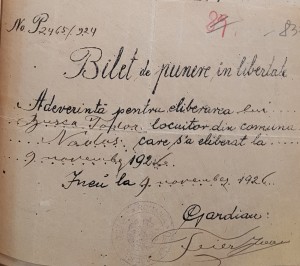 No P2465/924
83
Bilet de punere in libertate
Adeverintă pentru eliberarea lui
locuitor din comuna
care s'a eliberat la
9 novembr 192
Ineu la 9 novembre 1926
Gardian: